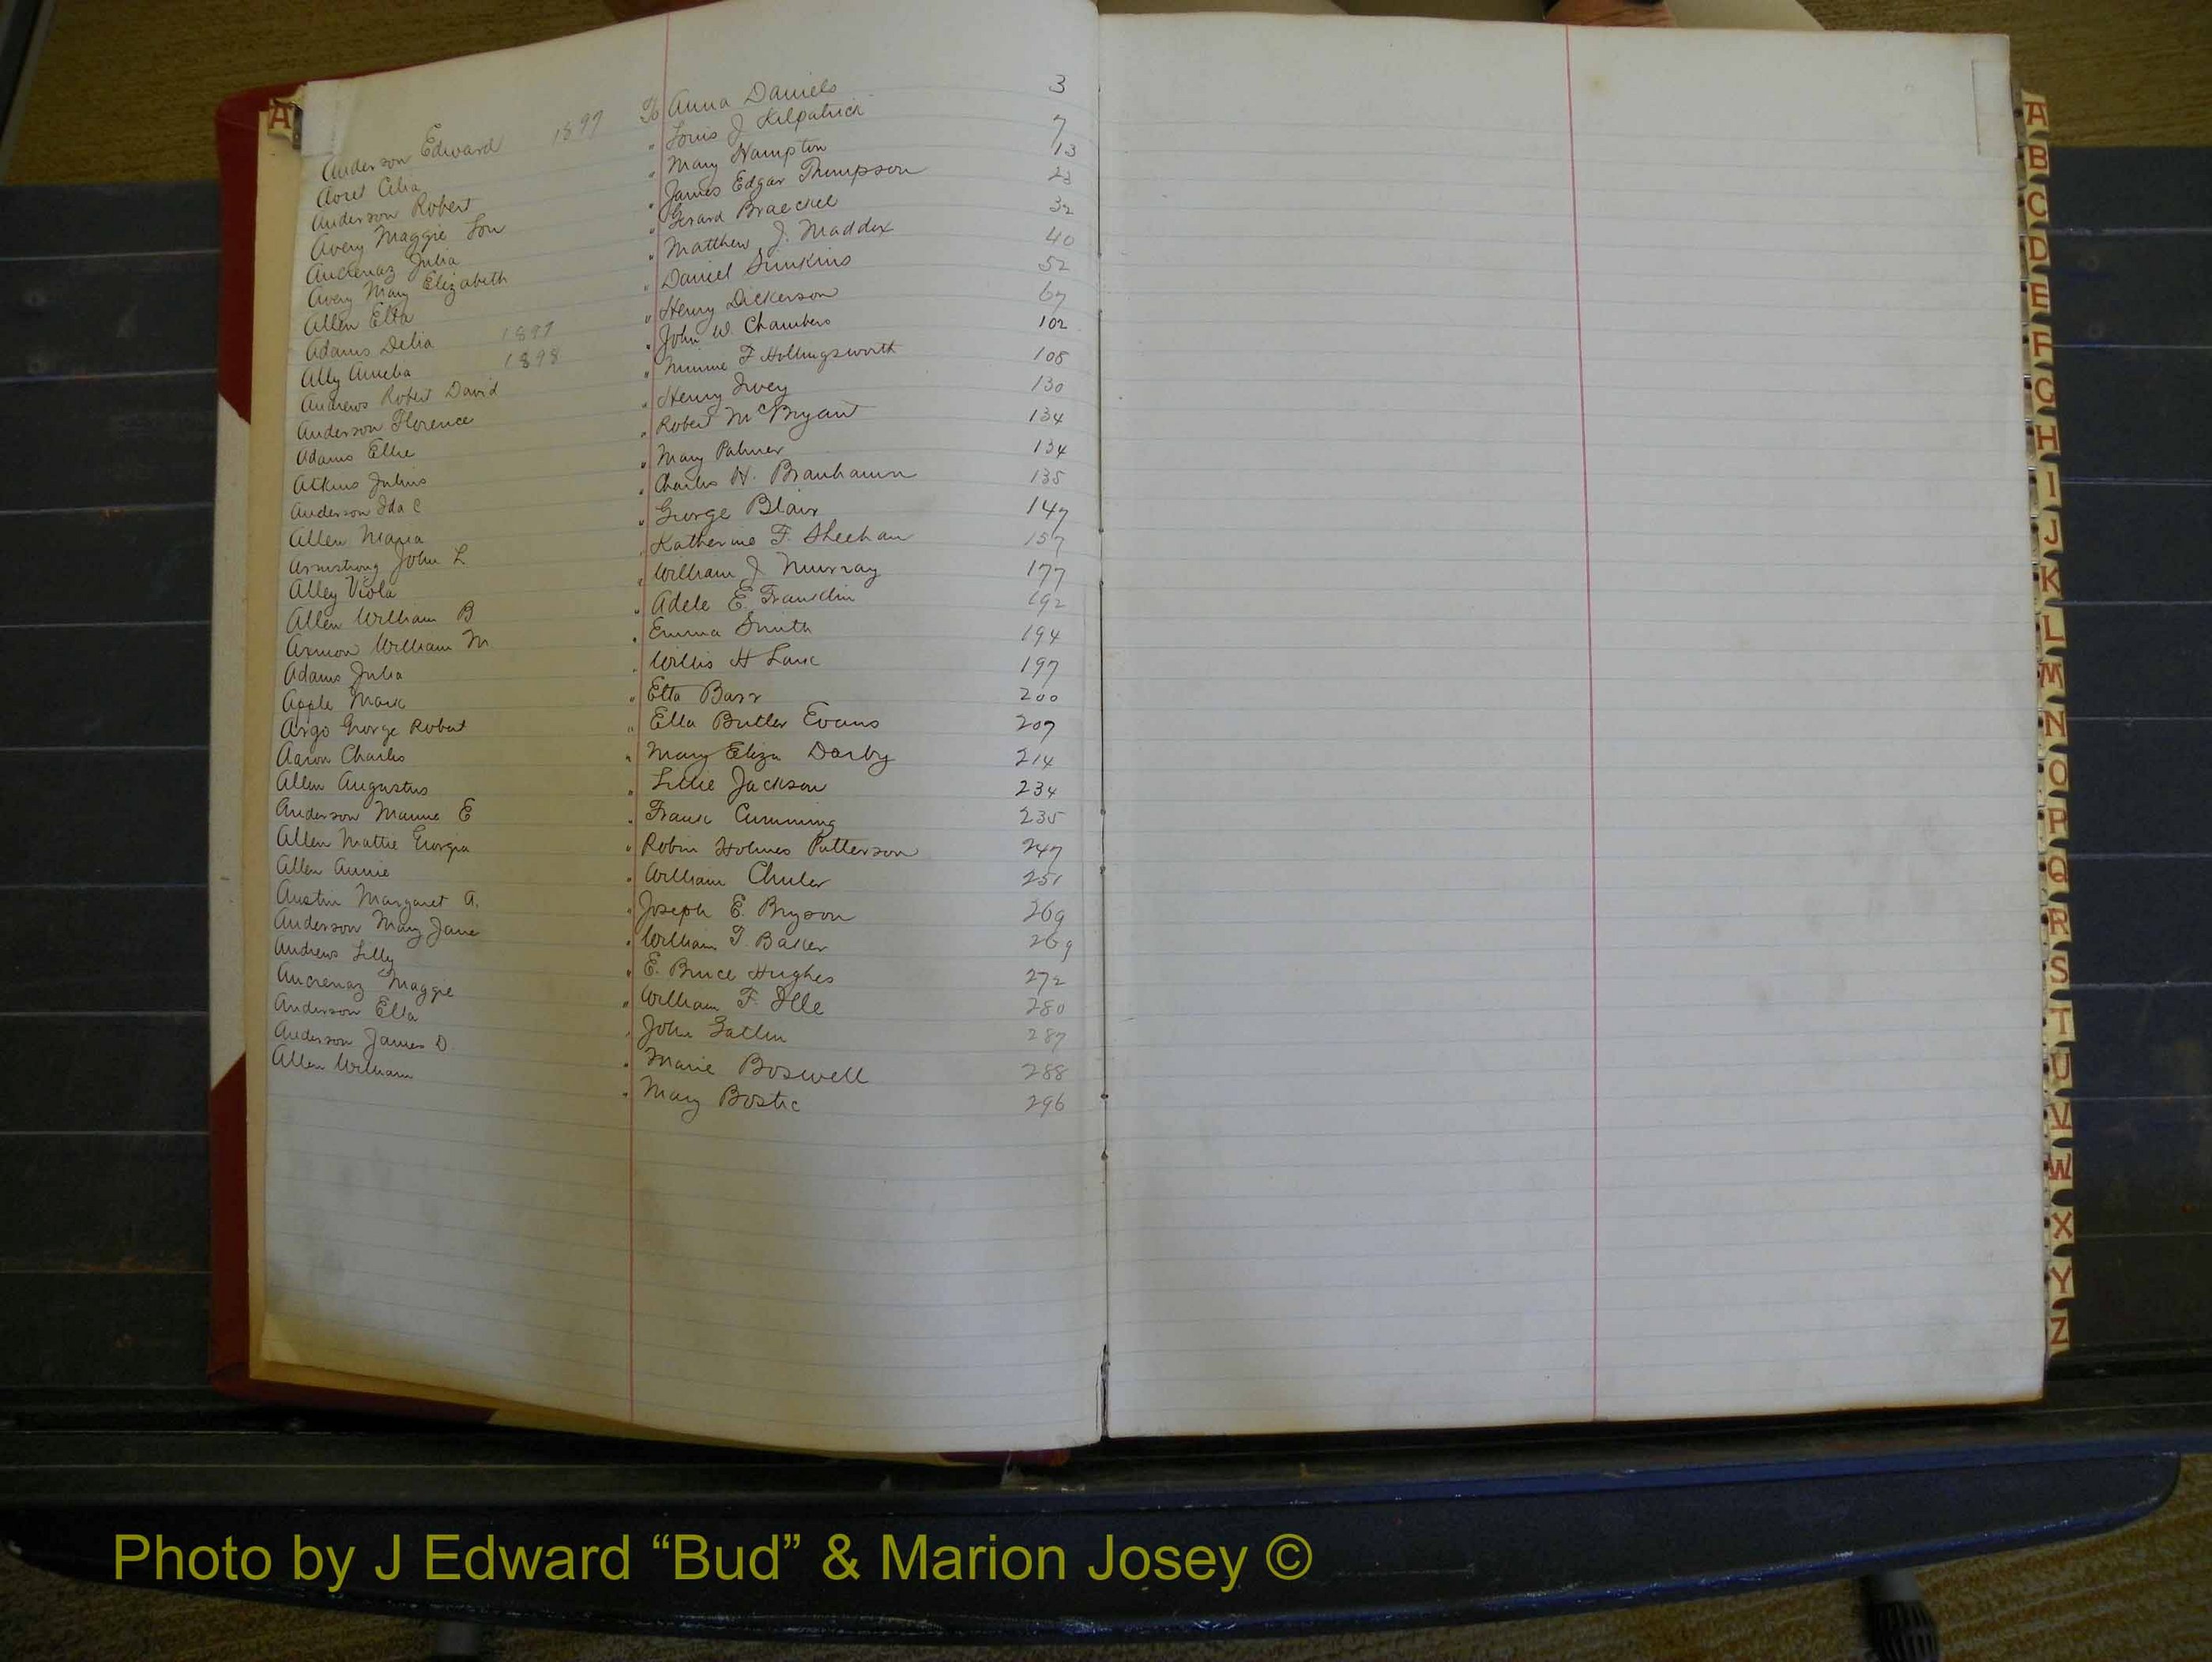 A
Anderson Edward 1897 To Anna Daniels 3
Celia " Louis J Kilpatrick 7
Anderson Robert " Mary Hampton 13
Avery Maggie Lou " James Edgar Thompson 23
Julia " Gerard Braeckel 32
Avery Mary Elizabeth " Matthew J. Maddox 40
Allen Etta " Daniel Simkins 52
Adams Delia 1897 " Henry Dickerson 67
Ally Amelia 1898 " John W. Chambers 102
Andrews Robert David " Minnie F Hollingsworth 108
Anderson Florence " Henry Ivey 130
Adams Ellie " Robert McBryant 134
Atkins Julius " Mary Palmer 134
Anderson Ida C " Charles H. Branham 135
Allen Maria " George Blair 147
Armstrong John L " Katherine F. Sheehan 157
Alley Viola " William J Murray 177
Allen William B " Adele E. Franklin 192
William M. " Emma Smith 194
Adams Julia " Willis H 197
Apple Mark " Etta Barr 200
Argo George Robert " Ella Butler Evans 207
Aaron Charles " Mary Eliza Darby 214
Allen Augustus " Lillie Jackson 234
Anderson Mamie E " Frank Cumming 235
Allen Mattie Georgia " Robin Holmes Patterson 247
Allen Annie " William 251
Austin Margaret A. " Joseph E. Bryson 269
Anderson Mary Jane " William T. Baker 269
Andrews Lilly " E. Bruce Hughes 272
Maggie " William F. Ille 280
Anderson Ella " John Gatlin 287
Anderson James D. " Marie Boswell 288
Allen William " Mary Bostic 296
A
B
C
D
E
F
G
H
I
J
K
L
M
N
O
P
Q
R
S
T
U
V
W
X
Y
Z
Photo by J Edward “Bud” & Marion Josey ©